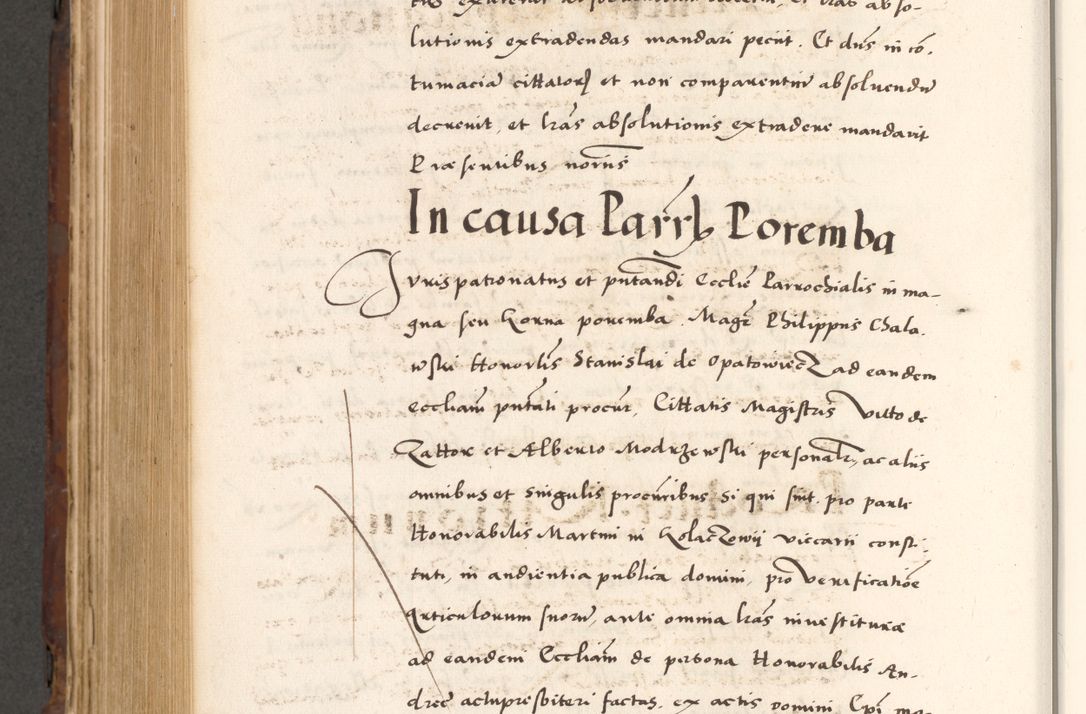 lutionis extradendas mandari peciit. Et dns in co,
tumaciā cittatorꝝ et non comparentiū absoluendū
decreuit, et lrās absolutionis extradere mandauit
Præsentibus norūs
In causa Parrlꝭ Poremba
Jurispatronatus et pntandi Ecclie Parrochialis in ma-
gna seu Gorna poremba. Magr Philippus Chala.
wski Honorlis Stanislai de Opatowiecz ad eandem
eccliam pntati procur, Cittatis Magistris Vitto de
Zattor et Alberto Modrzewski personalr, ac aliis
omnibus et singulis procuribus si qui sint. pro parte
Honorabilis Martini in Kolaczowij viccarii consti-
tuti, in audientia publica domini, pro verificatiōe
articulorum suorū, ante omnia lrās inuestituræ
ad eandem Eccliam de persona Honorabilis An-
dreę actupresbiteri factas, ex actis domini Epi